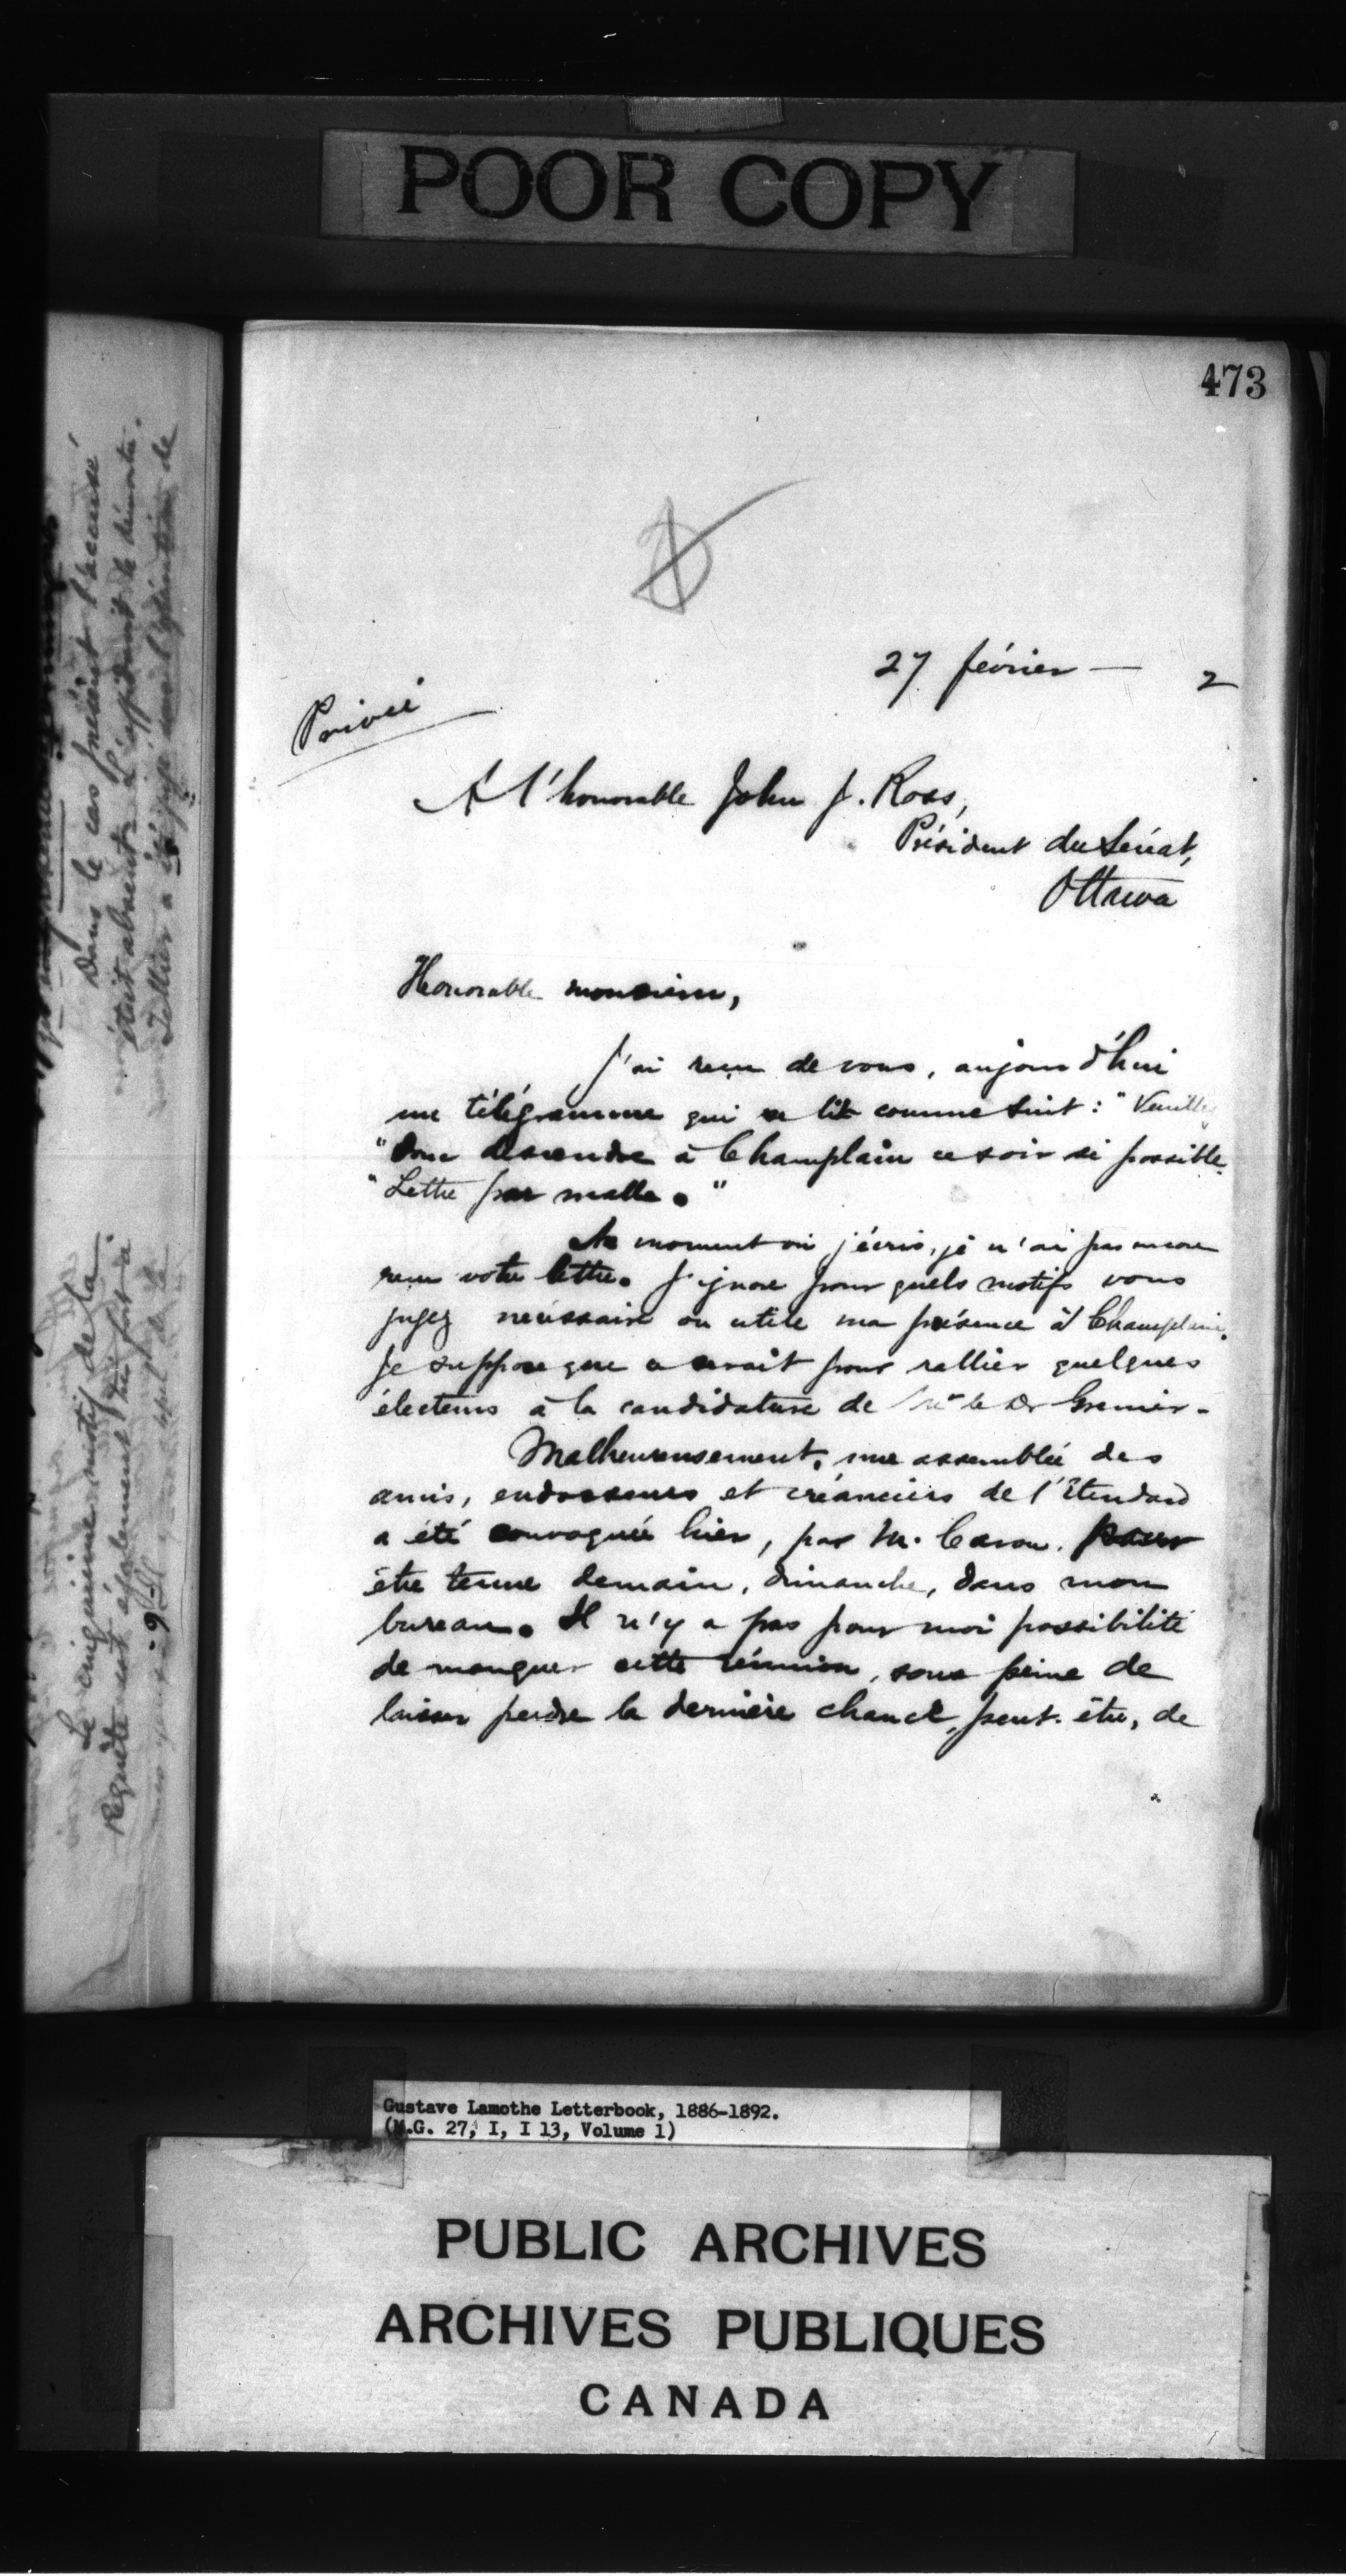 POOR COPY
473
27 février — 2
Privée
A l'honorable John J. Ross,
Président du Sénat,
Ottawa
Honorable monsieur,
J'ai reçu de vous, aujourd'hui
un télégramme qui se lit comme suit : "Veuillez
"donc descendre à Champlain ce soir si possible.
"Lettre par malle."
Au moment où j'écris, je n'ai pas encore
reçu votre lettre. J'ignore pour quels motifs vous
jugez nécessaire ou utile ma présence à Champlain.
Je suppose que ce serait pour rallier quelques
électeurs à la candidature de Mr le Dr Grenier.
Malheureusement, une assemblée des
amis, endosseurs et créanciers de l'Etendard
a été convoquée hier, par M. Caron, pour
être tenue demain, dimanche, dans mon
bureau. Il n'y a pas pour moi possibilité
de manquer cette réunion, sous peine de
laisser perdre la dernière chance, peut-être, de
Dans le cas présent l'accusé
était absent
Le cinquième motif de la
Requête est également très fort à
Gustave Lamothe Letterbook, 1886-1892.
(M.G. 27, I, I 13, Volume 1)
PUBLIC ARCHIVES
ARCHIVES PUBLIQUES
CANADA